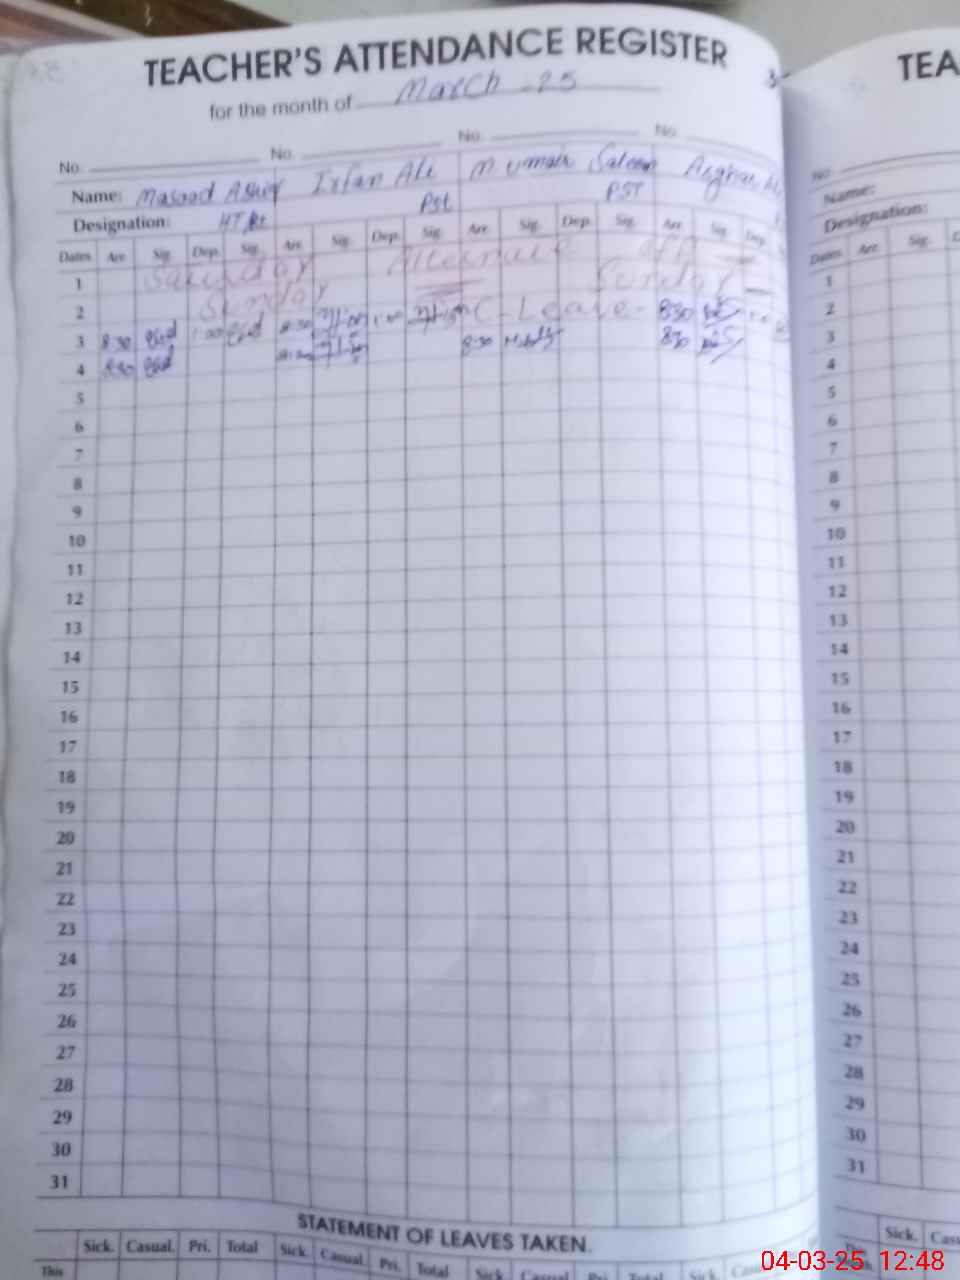 TEACHER'S ATTENDANCE REGISTER
for the month of March - 25
No. No. No. No.
Name: Masood Irfan Ali M Umair Saleem
Designation: PST PST
Dates Arr. Sig. Dep. Sig. Arr. Sig. Dep. Sig. Arr. Sig. Dep. Sig. Arr. Sig. Dep.
1 Saturday Alternate off
2 Sunday Sunday
3 8:30 1:00 8:30 C-Leave- 830
4 8:30 8:30 830
5
6
7
8
9
10
11
12
13
14
15
16
17
18
19
20
21
22
23
24
25
26
27
28
29
30
31
STATEMENT OF LEAVES TAKEN.
Sick. Casual. Pri. Total Sick. Casual Pri. Total Sick. Casual Pri. Total Sick. Casual
This
TEA
No.
Name:
Designation:
Dates Arr. Sig.
1
2
3
4
5
6
7
8
9
10
11
12
13
14
15
16
17
18
19
20
21
22
23
24
25
26
27
28
29
30
31
Sick. Cas
04-03-25 12:48